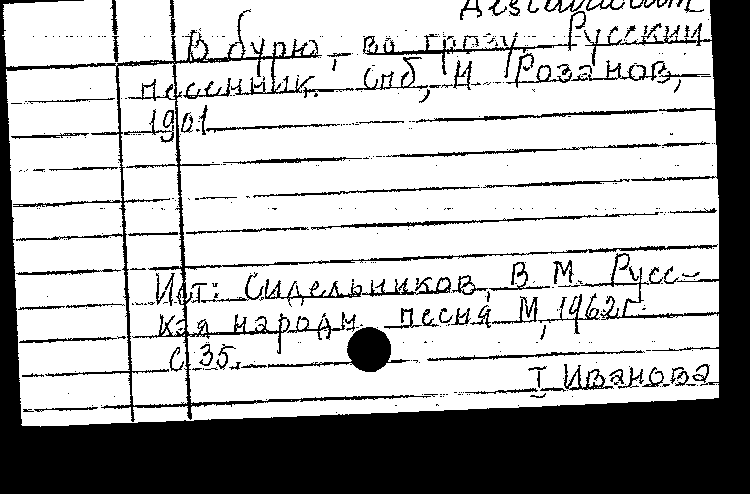 В бурю, во грозу. Русский
песенник. Спб, Н Розанов,
1901
Ист: Сидельников, В М. Русс-
кая народн. песня М, 1962г
с 35.
I Иванова